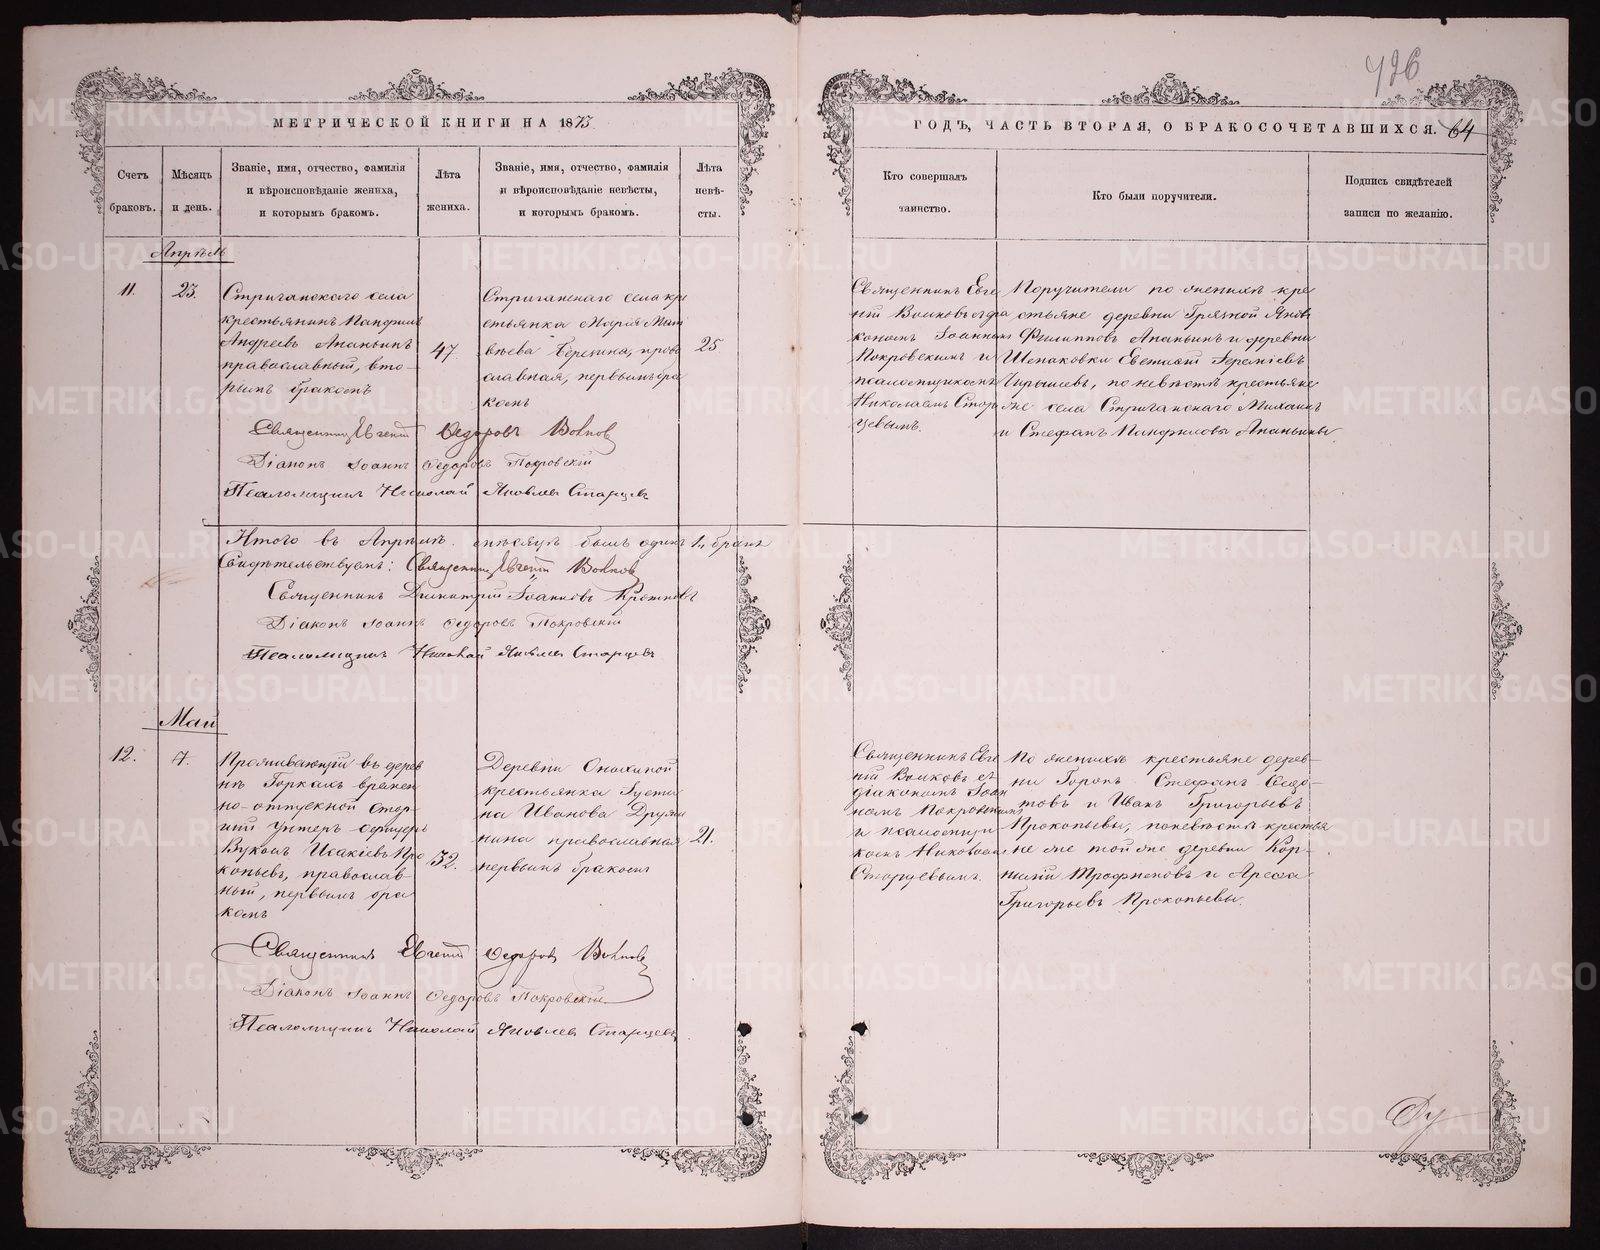 726
МЕТРИЧЕСКОЙ КНИГИ НА 1873
ГОДЪ, ЧАСТЬ ВТОРАЯ, О БРАКОСОЧЕТАВШИХСЯ. 64
Счетъ
браковъ.
Мѣсяцъ
и день.
Званіе, имя, отчество, фамилія
и вѣроисповѣданіе жениха,
и которымъ бракомъ.
Лѣта
жениха.
Званіе, имя, отчество, фамилія
и вѣроисповѣданіе невѣсты,
и которымъ бракомъ.
Лѣта
невѣ-
сты.
Кто совершалъ
таинство.
Кто были поручители.
Подпись свидѣтелей
записи по желанію.
Апрѣль
11.
23.
Стриганскаго села
крестьянинъ Панфилъ
Андреевъ Ананьинъ
православный, вто-
рымъ бракомъ
47.
Стриганскаго села кре
стьянка Марія Мат
вѣева, право
славная, первымъ бра
комъ
25
Священникъ Евге
ній Волковъ съ діа
кономъ Іоанномъ
Покровскимъ и
псаломщикомъ
Николаемъ Стар
цевымъ.
Поручители по женихѣ кре
стьяне деревни Грязной Яковъ
Филипповъ Ананьинъ и деревни
Шмаковки Евстафій
по невѣстѣ крестьяне
же села Стриганскаго Михаилъ
и Стефанъ Панфиловы Ананьины
Священникъ Евгеній Ѳедоровъ Волковъ
Діаконъ Іоаннъ Ѳедоровъ Покровскій
Псаломщикъ Николай Яковлевъ Старцевъ
Итого въ Апрѣлѣ мѣсяцѣ былъ одинъ 1. бракъ
Свидѣтельствуемъ: Священникъ Евгеній Волковъ
Священникъ Димитрій Іоанновъ
Діаконъ Іоаннъ Ѳедоровъ Покровскій
Псаломщикъ Николай Яковлевъ Старцевъ
Май
12.
7.
Проживающій въ дерев
нѣ Горкахъ времен
но-отпускной Стар-
шій унтеръ офицеръ
Вуколъ Исакіевъ Про
копьевъ, православ-
ный, первымъ бра
комъ
32.
Деревни Онохиной
крестьянка Густи
на Иванова Дружи
нина православная
первымъ бракомъ
21.
Священникъ Евге
ній Волковъ съ
діакономъ Іоан
номъ Покровскимъ
и псаломщи
комъ Николаемъ
Старцевымъ.
По женихѣ крестьяне дерев-
ни Горокъ Стефанъ Ѳедо-
товъ и Иванъ Григорьевъ
Прокопьевы, по невѣстѣ крестья
не же той же деревни Кор-
нилій Трофимовъ и
Григорьевъ Прокопьевы.
Священникъ Евгеній Ѳедоровъ Волковъ
Діаконъ Іоаннъ Ѳедоровъ Покровскій
Псаломщикъ Николай Яковлевъ Старцевъ
METRIKI.GASO-URAL.RU